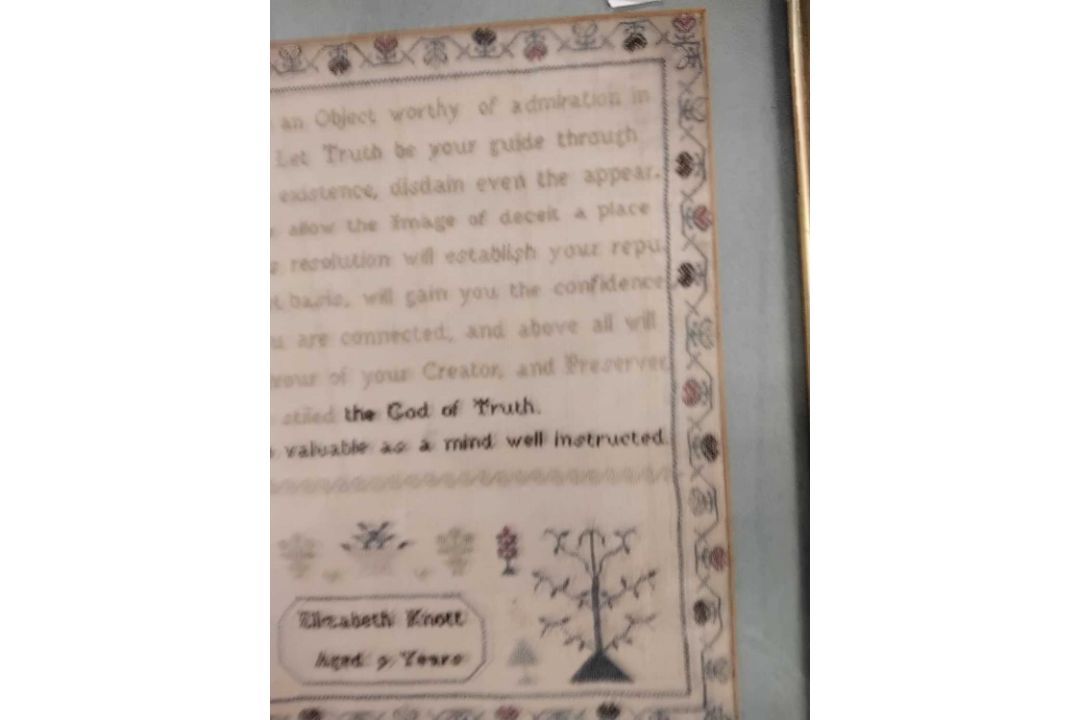 an Object worthy of admiration in
Let Truth be your guide through
existence, disdain even the appear.
allow the Image of deceit a place
resolution will establish your repu.
basis, will gain you the confidence
are connected, and above all will
of your Creator, and Preserver,
stiled the God of Truth.
valuable as a mind well instructed.
Elizabeth Knott
Aged 9 Years